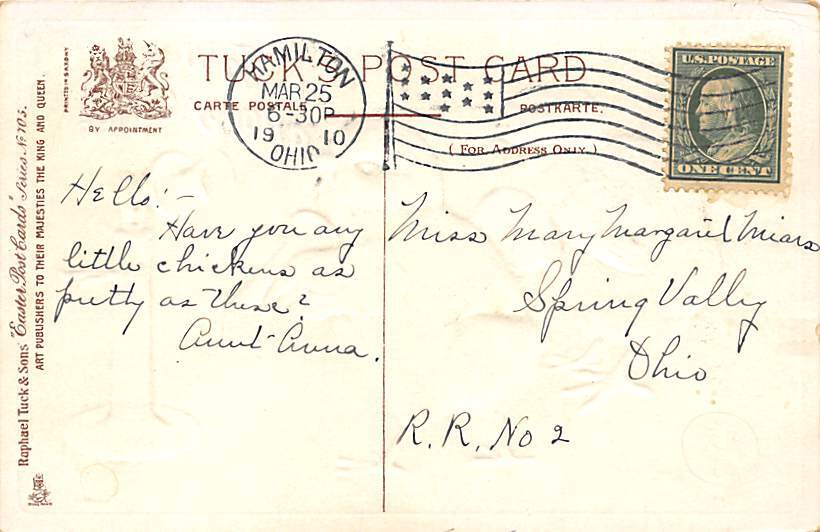 TUCK'S POST CARD
CARTE POSTALE
POSTKARTE.
( FOR ADDRESS ONLY. )
BY APPOINTMENT
PRINTED IN SAXONY
Raphael Tuck & Sons' "Easter Post Cards" Series No 105.
ART PUBLISHERS TO THEIR MAJESTIES THE KING AND QUEEN.
HAMILTON
MAR 25
6-30P
1910
OHIO
U.S. POSTAGE
ONE CENT
Hello! -
Have you any
little chickens as
pretty as these?
Aunt Anna.
Miss Mary Margaret Mears
Spring Valley
Ohio
R. R. No 2